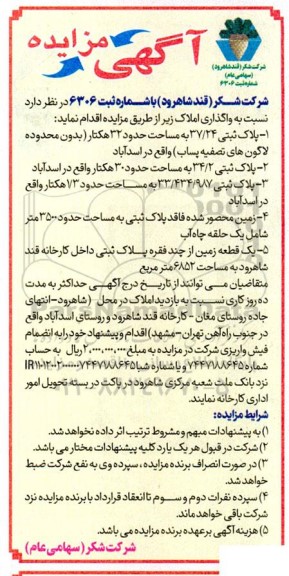 آگهی مزایده
شرکت شکر (قند شاهرود)
(سهامی عام)
شماره ثبت ۶۳۰۶
شرکت شکر (قند شاهرود) با شماره ثبت ۶۳۰۶ در نظر دارد
نسبت به واگذاری املاک زیر از طریق مزایده اقدام نماید:
۱- پلاک ثبتی ۳۷/۲۴ به مساحت حدود ۳۲ هکتار (بدون محدوده
لاگون های تصفیه پساب) واقع در اسدآباد
۲- پلاک ثبتی ۳۴/۲ به مساحت حدود ۳۰ هکتار واقع در اسدآباد
۳- پلاک ثبتی ۳۳/۴۳۴/۹۸۷ به مساحت حدود ۱/۳ هکتار واقع
در اسدآباد
۴- زمین محصور شده فاقد پلاک ثبتی به مساحت حدود ۳۵۰۰ متر
شامل یک حلقه چاه آب
۵- یک قطعه زمین از چند فقره پلاک ثبتی داخل کارخانه قند
شاهرود به مساحت ۶۸۵۲ متر مربع
متقاضیان می توانند از تاریخ درج آگهی حداکثر به مدت
ده روز کاری نسبت به بازدید املاک در محل (شاهرود-انتهای
جاده روستای مغان - کارخانه قند شاهرود و روستای اسدآباد واقع
در جنوب راه آهن تهران-مشهد) اقدام و پیشنهاد خود را به انضمام
فیش واریزی شرکت در مزایده به مبلغ ۲.۰۰۰.۰۰۰.۰۰۰ ریال به حساب
شماره ۷۴۴۷۱۸۸۶۴۵ و یا شماره شبا
نزد بانک ملت شعبه مرکزی شاهرود در پاکت در بسته تحویل امور
اداری کارخانه نمایند.
شرایط مزایده:
۱) به پیشنهادات مبهم و مشروط ترتیب اثر داده نخواهد شد.
۲) شرکت در قبول هر یک یا رد کلیه پیشنهادات مختار می باشد.
۳) در صورت انصراف برنده مزایده، سپرده وی به نفع شرکت ضبط
خواهد شد.
۴) سپرده نفرات دوم و سوم تا انعقاد قرارداد با برنده مزایده نزد
شرکت باقی خواهد ماند.
۵) هزینه آگهی بر عهده برنده مزایده می باشد.
شرکت شکر (سهامی عام)